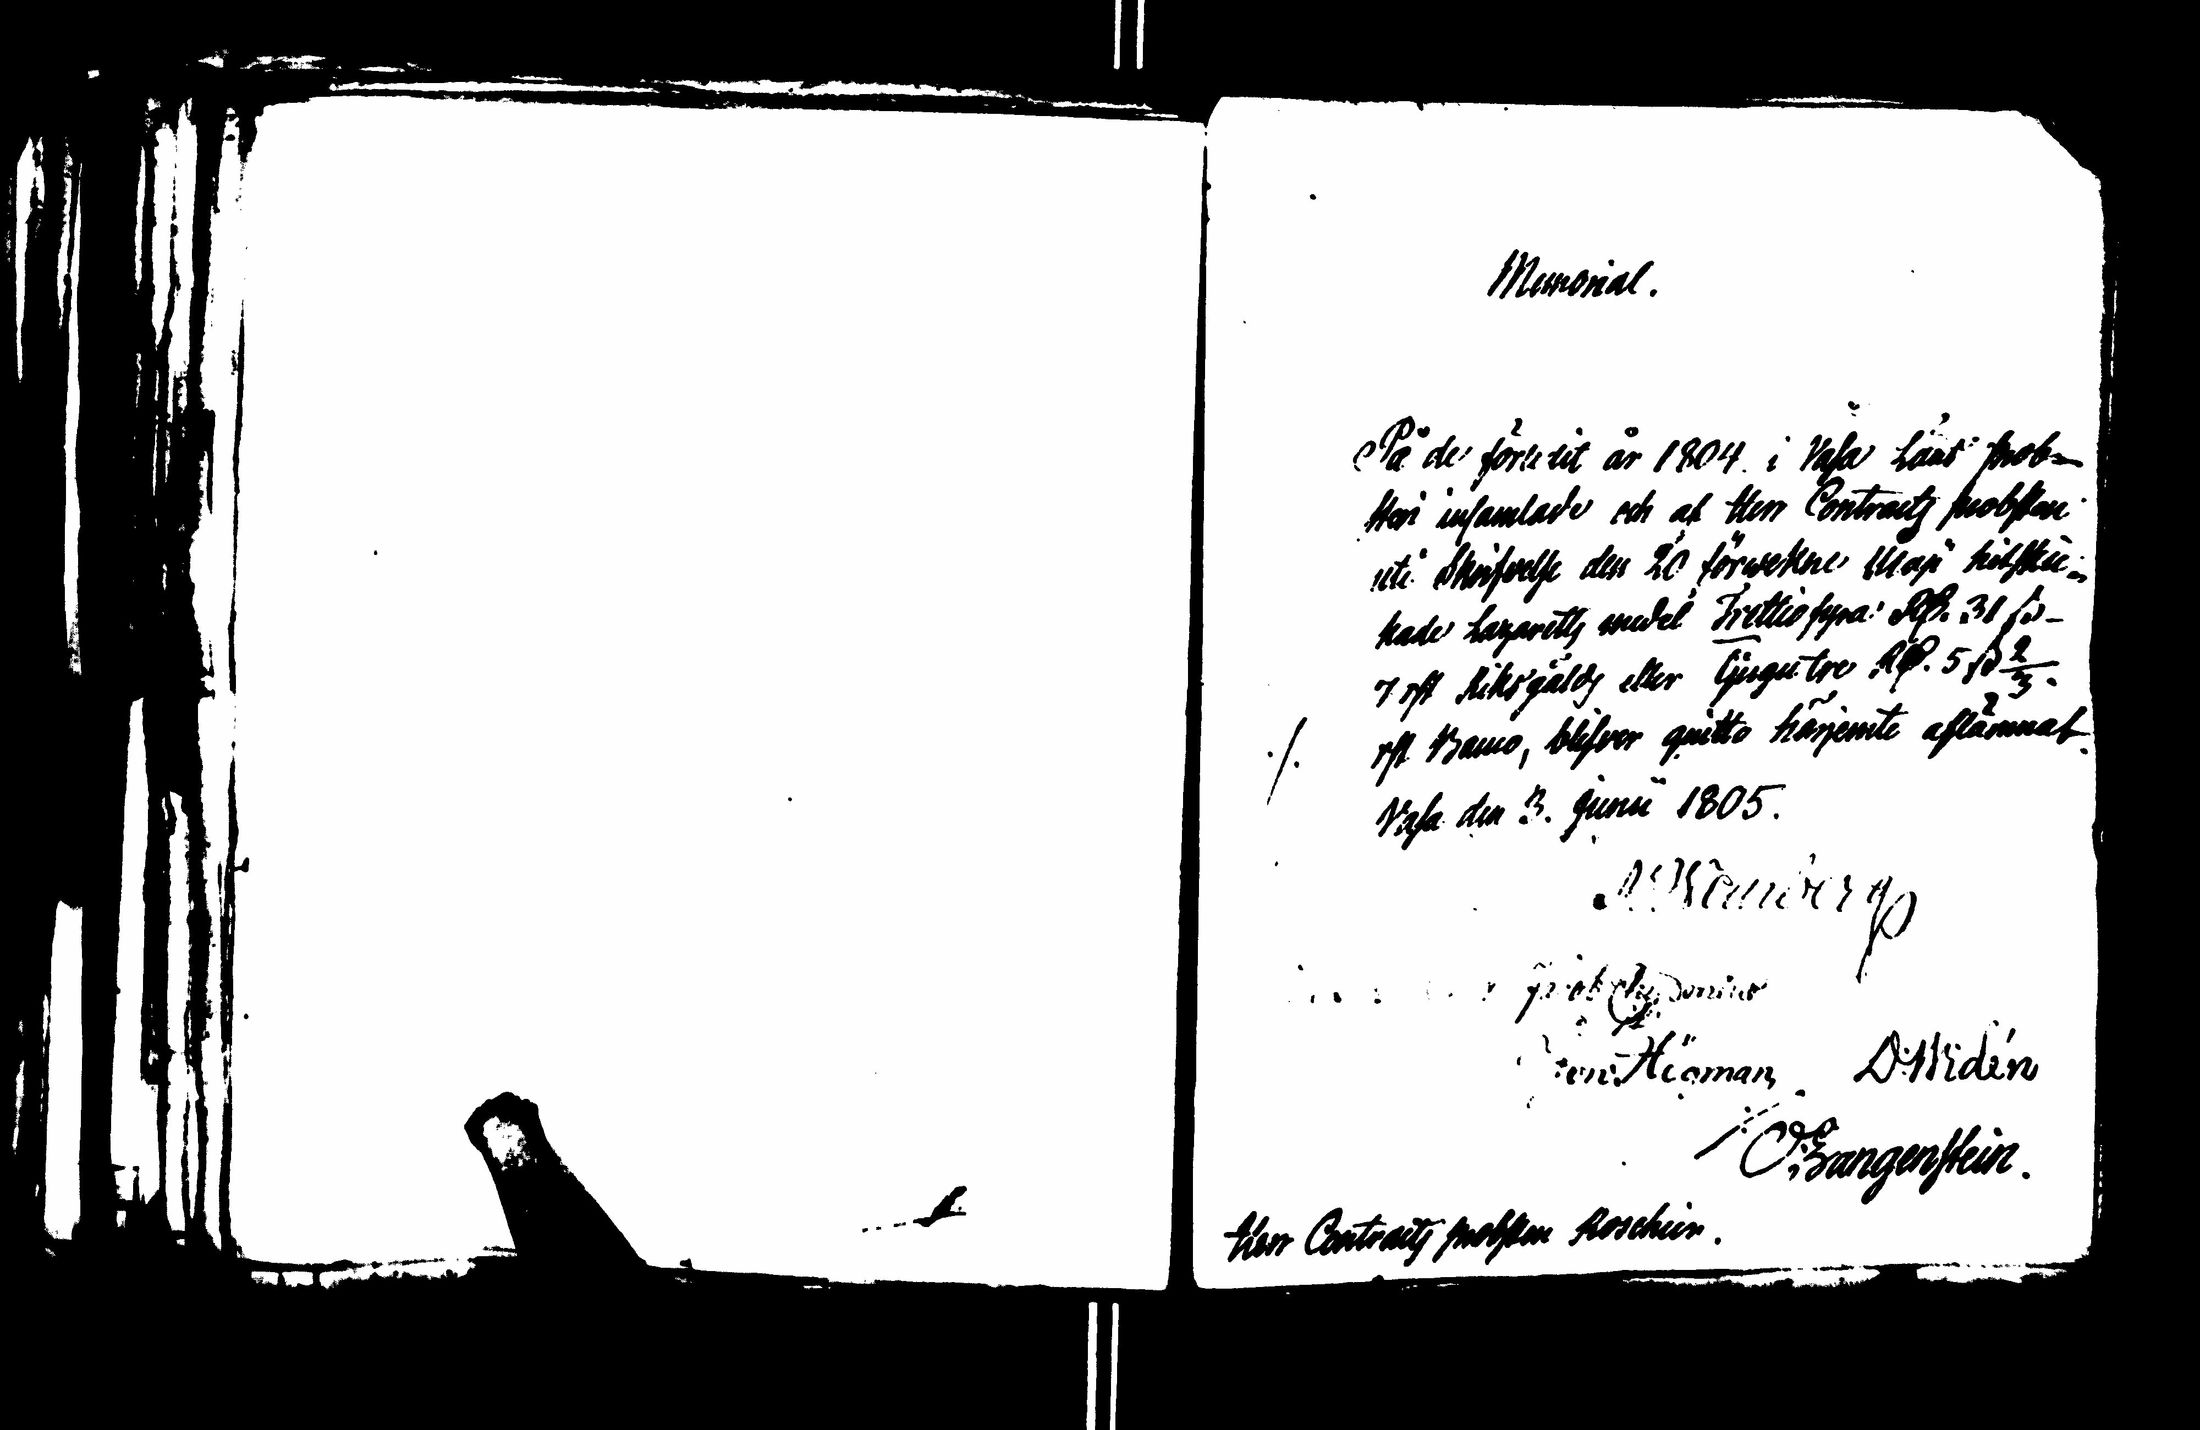 Memorial.
På de förledit år 1804 i Vasa Läns prob-
steri insamlade och af Herr Contracts probsten
uti Skrifvelse den 20 förwekne Maji hitskic-
kade Lazaretts medel Trettiofyra Rd. 31 s.
7 rst Riksgälds eller Tjugutre Rd. 5 s 2/3
rst Banco, blifver quitto härjemte aflämnat.
Vasa den 3. Junii 1805.
Jacob Chydenius
Högman D. Widén
Langenstein.
Herr Contracts probsten Roschier.